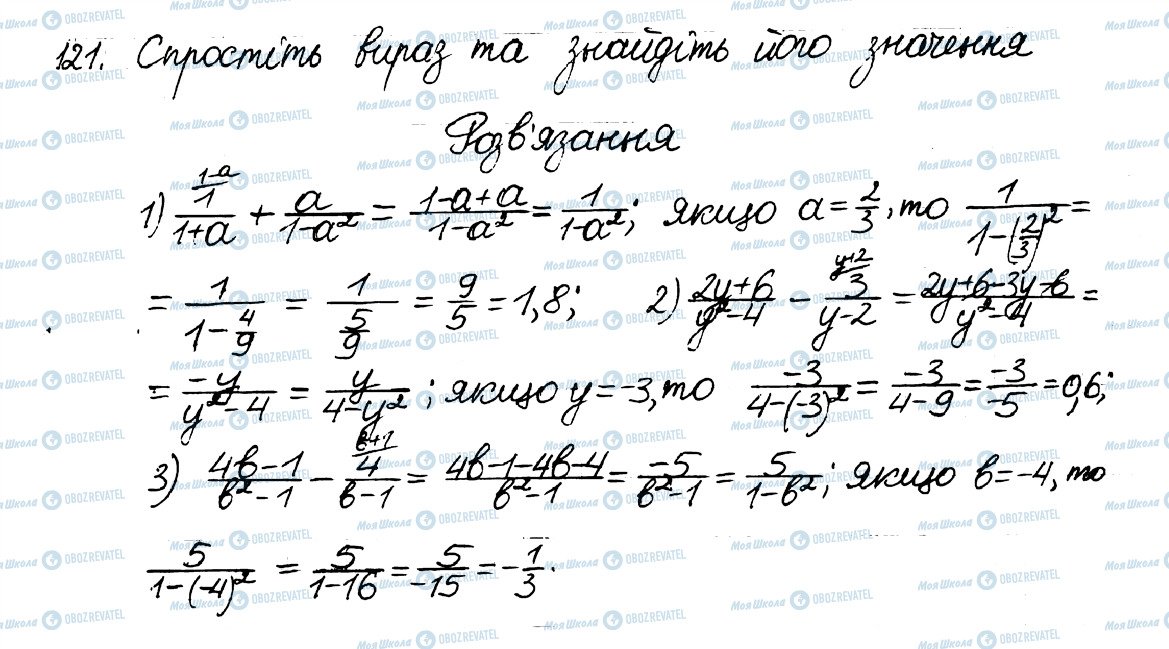 121. Спростіть вираз та знайдіть його значення
Розв'язання
1) \frac{1}{1+a}^{1-a} + \frac{a}{1-a^2} = \frac{1-a+a}{1-a^2} = \frac{1}{1-a^2}; якщо a = \frac{2}{3}, то \frac{1}{1-(\frac{2}{3})^2} =
= \frac{1}{1-\frac{4}{9}} = \frac{1}{\frac{5}{9}} = \frac{9}{5} = 1,8; 2) \frac{2y+6}{y^2-4} - \frac{3}{y-2}^{y+2} = \frac{2y+6-3y-6}{y^2-4} =
= \frac{-y}{y^2-4} = \frac{y}{4-y^2}; якщо y = -3, то \frac{-3}{4-(-3)^2} = \frac{-3}{4-9} = \frac{-3}{-5} = 0,6;
3) \frac{4в-1}{в^2-1} - \frac{4}{в-1}^{в+1} = \frac{4в-1-4в-4}{в^2-1} = \frac{-5}{в^2-1} = \frac{5}{1-в^2}; якщо в = -4, то
\frac{5}{1-(-4)^2} = \frac{5}{1-16} = \frac{5}{-15} = -\frac{1}{3}.
Моя Школа OBOZREVATEL